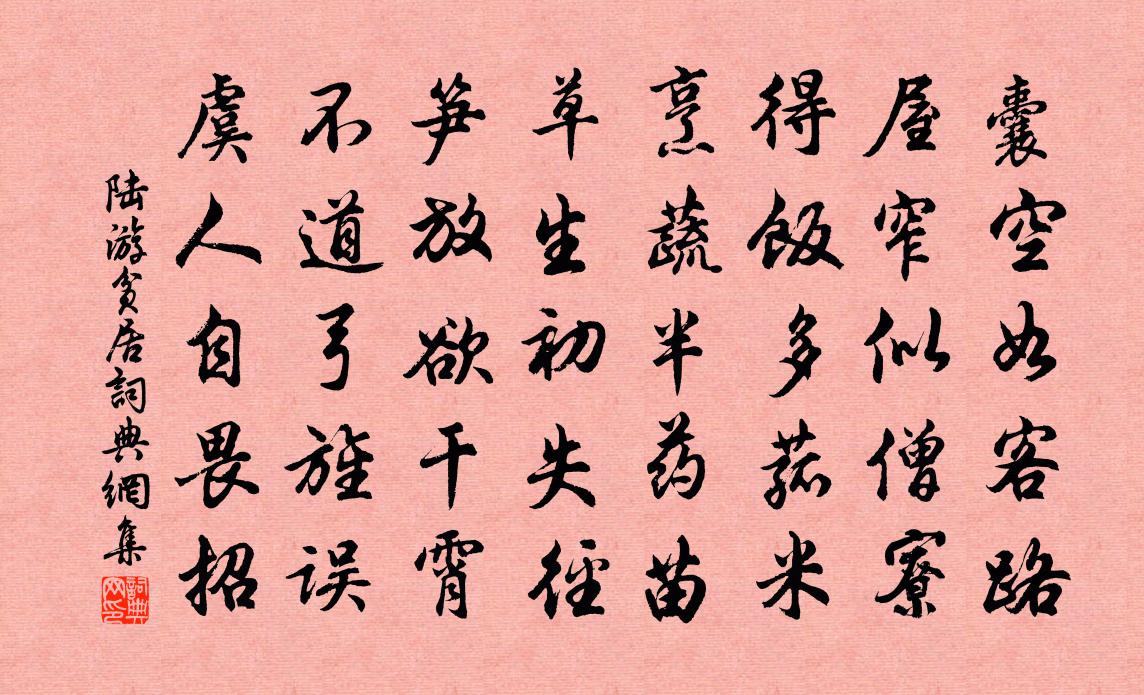 囊空如客路
屋窄似僧寮
得飯多菰米
烹蔬半药苗
草生初失徑
笋放欲干霄
不道弓旌误
虞人自畏招
陆游貧居詞典網集
詞典网印